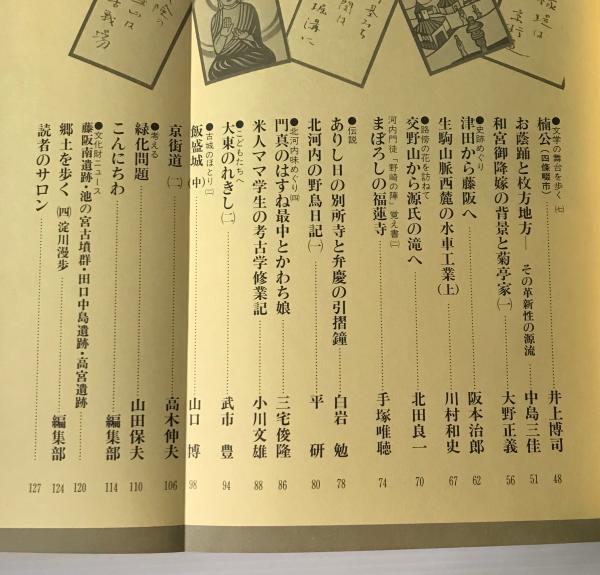 ●文学の舞台を歩く(七)
楠公(四條畷市) 井上博司 48
お蔭踊と枚方地方―その革新性の源流 中島三佳 51
和宮御降嫁の背景と菊亭家(一) 大野正義 56
●史跡めぐり
津田から藤阪へ 阪本治郎 62
生駒山脈西麓の水車工業(上) 川村和史 67
●路傍の花を訪ねて
交野山から源氏の滝へ 北田良一 70
河内門徒「野崎の陣」覚え書(二)
まぼろしの福蓮寺 手塚唯聴 74
●伝説
ありし日の別所寺と弁慶の引摺鐘 白岩勉 78
北河内の野鳥日記(一) 平研 80
●北河内味めぐり(四)
門真のはすね最中とかわち娘 三宅俊隆 86
米人ママ学生の考古学修業記 小川文雄 88
●こどもたちへ
大東のれきし(二) 武市豊 94
●古城のほとり(二)
飯盛城(中) 山口博 98
京街道(二) 高木伸夫 106
●考える
緑化問題 山田保夫 110
こんにちわ 編集部 114
●文化財ニュース
藤阪南遺跡・池の宮古墳群・田口中島遺跡・高宮遺跡 120
郷土を歩く(四)淀川漫歩 編集部 124
読者のサロン 127